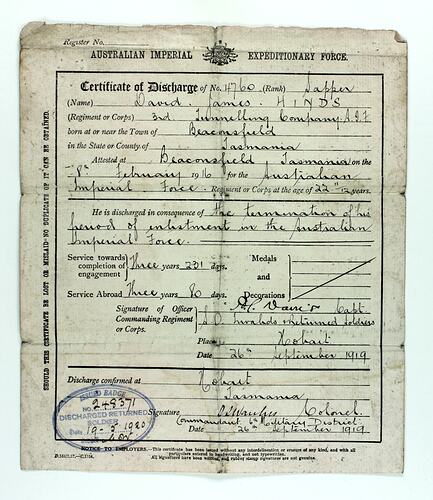 Register No.
AUSTRALIAN IMPERIAL EXPEDITIONARY FORCE.
Certificate of Discharge of No. 4760 (Rank) Sapper
(Name) David James HINDS
(Regiment or Corps) 3rd Tunnelling Company A.I.F
born at or near the Town of Beaconsfield
in the State or County of Tasmania
Attested at Beaconsfield Tasmania on the
8th February 1916 for the Australian
Imperial Force Regiment or Corps at the age of 22 years.
He is discharged in consequence of the termination of his
period of enlistment in the Australian
Imperial Force.
Service towards completion of engagement Three years 231 days.
Medals and Decorations
Service Abroad Three years 80 days.
Signature of Officer Commanding Regiment or Corps. Capt
S.O. Invalids & Returned Soldiers
Place Hobart
Date 26th September 1919
Discharge confirmed at Hobart
Tasmania
Signature Colonel.
Commandant 6th Military District
Date 26th September 1919
ISSUED BADGE
No. 248371
DISCHARGED RETURNED
SOLDIER
Date 19-3-1920
NOTICE TO EMPLOYERS.—This certificate has been issued without any interlineation or erasure of any kind, and with all
particulars entered in handwriting, and not typewritten.
All signatures have been written, and rubber stamp signatures are not genuine.
SHOULD THIS CERTIFICATE BE LOST OR MISLAID NO DUPLICATE OF IT CAN BE OBTAINED.